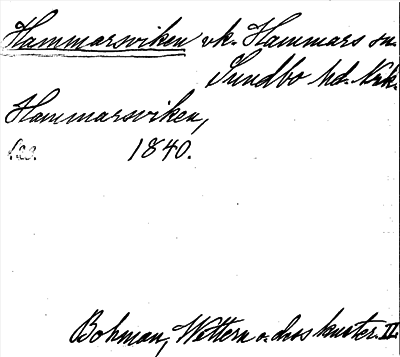 Hammarsviken vk. Hammars sn.
Sundbo hd. Nrk.
Hammarsviken,
1840.
Bohman, Wettern o. dess kuster. II.